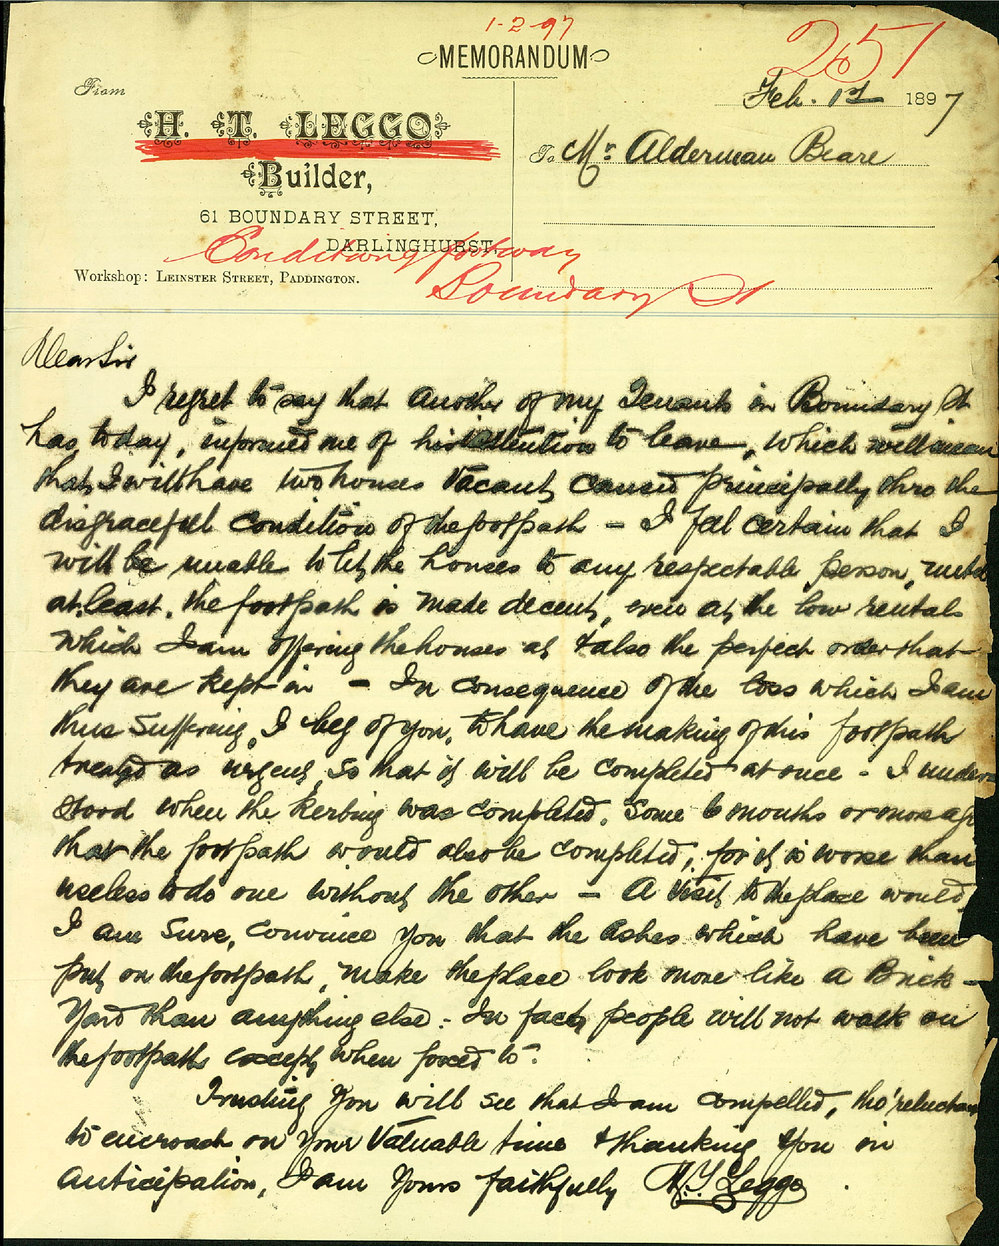 1-2-97
MEMORANDUM
265/
From
Feb. 1st 1897
H. T. LEGGO
To Mr. Alderman Beare
Builder,
61 BOUNDARY STREET,
DARLINGHURST.
Condition footway
Boundary St
Workshop: LEINSTER STREET, PADDINGTON.
Dear Sir
I regret to say that another of my Tenants in Boundary St
has, today, informed me of his intention to leave, which will mean
that, I will have two houses vacant, caused principally thro the
disgraceful condition of the footpath - I feel certain that I
will be unable to let, the houses to any respectable person, until
at least, the footpath is made decent, even at, the low rental
which I am offering the houses at & also the perfect order that
they are kept in - In consequence of the loss which I am
thus suffering, I beg of you, to have the making of this footpath
treated as urgent, so that it will be completed at once - I under-
stood when the kerbing was completed, some 6 months or more ago
that the footpath would also be completed, for it is worse than
useless to do one without the other - A visit, to the place would,
I am sure, convince you that the ashes which have been
put, on the footpath, make the place look more like a Brick -
Yard than anything else - In fact, people will not walk on
the footpath except, when forced to.
Trusting you will see that I am compelled, tho' reluctan
to encroach on your valuable time & thanking you in
anticipation, I am Yours faithfully H. T. Leggo